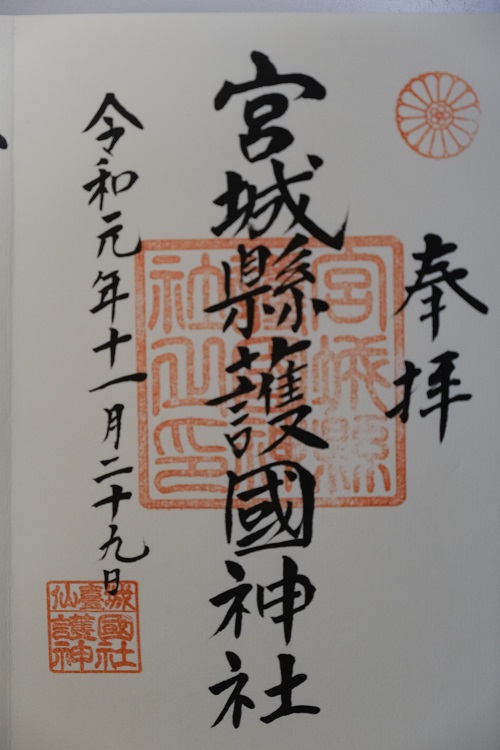 奉拝
宮城縣護國神社
宮城縣
護國神
社之印
令和元年十一月二十九日
仙臺城
護國
神社